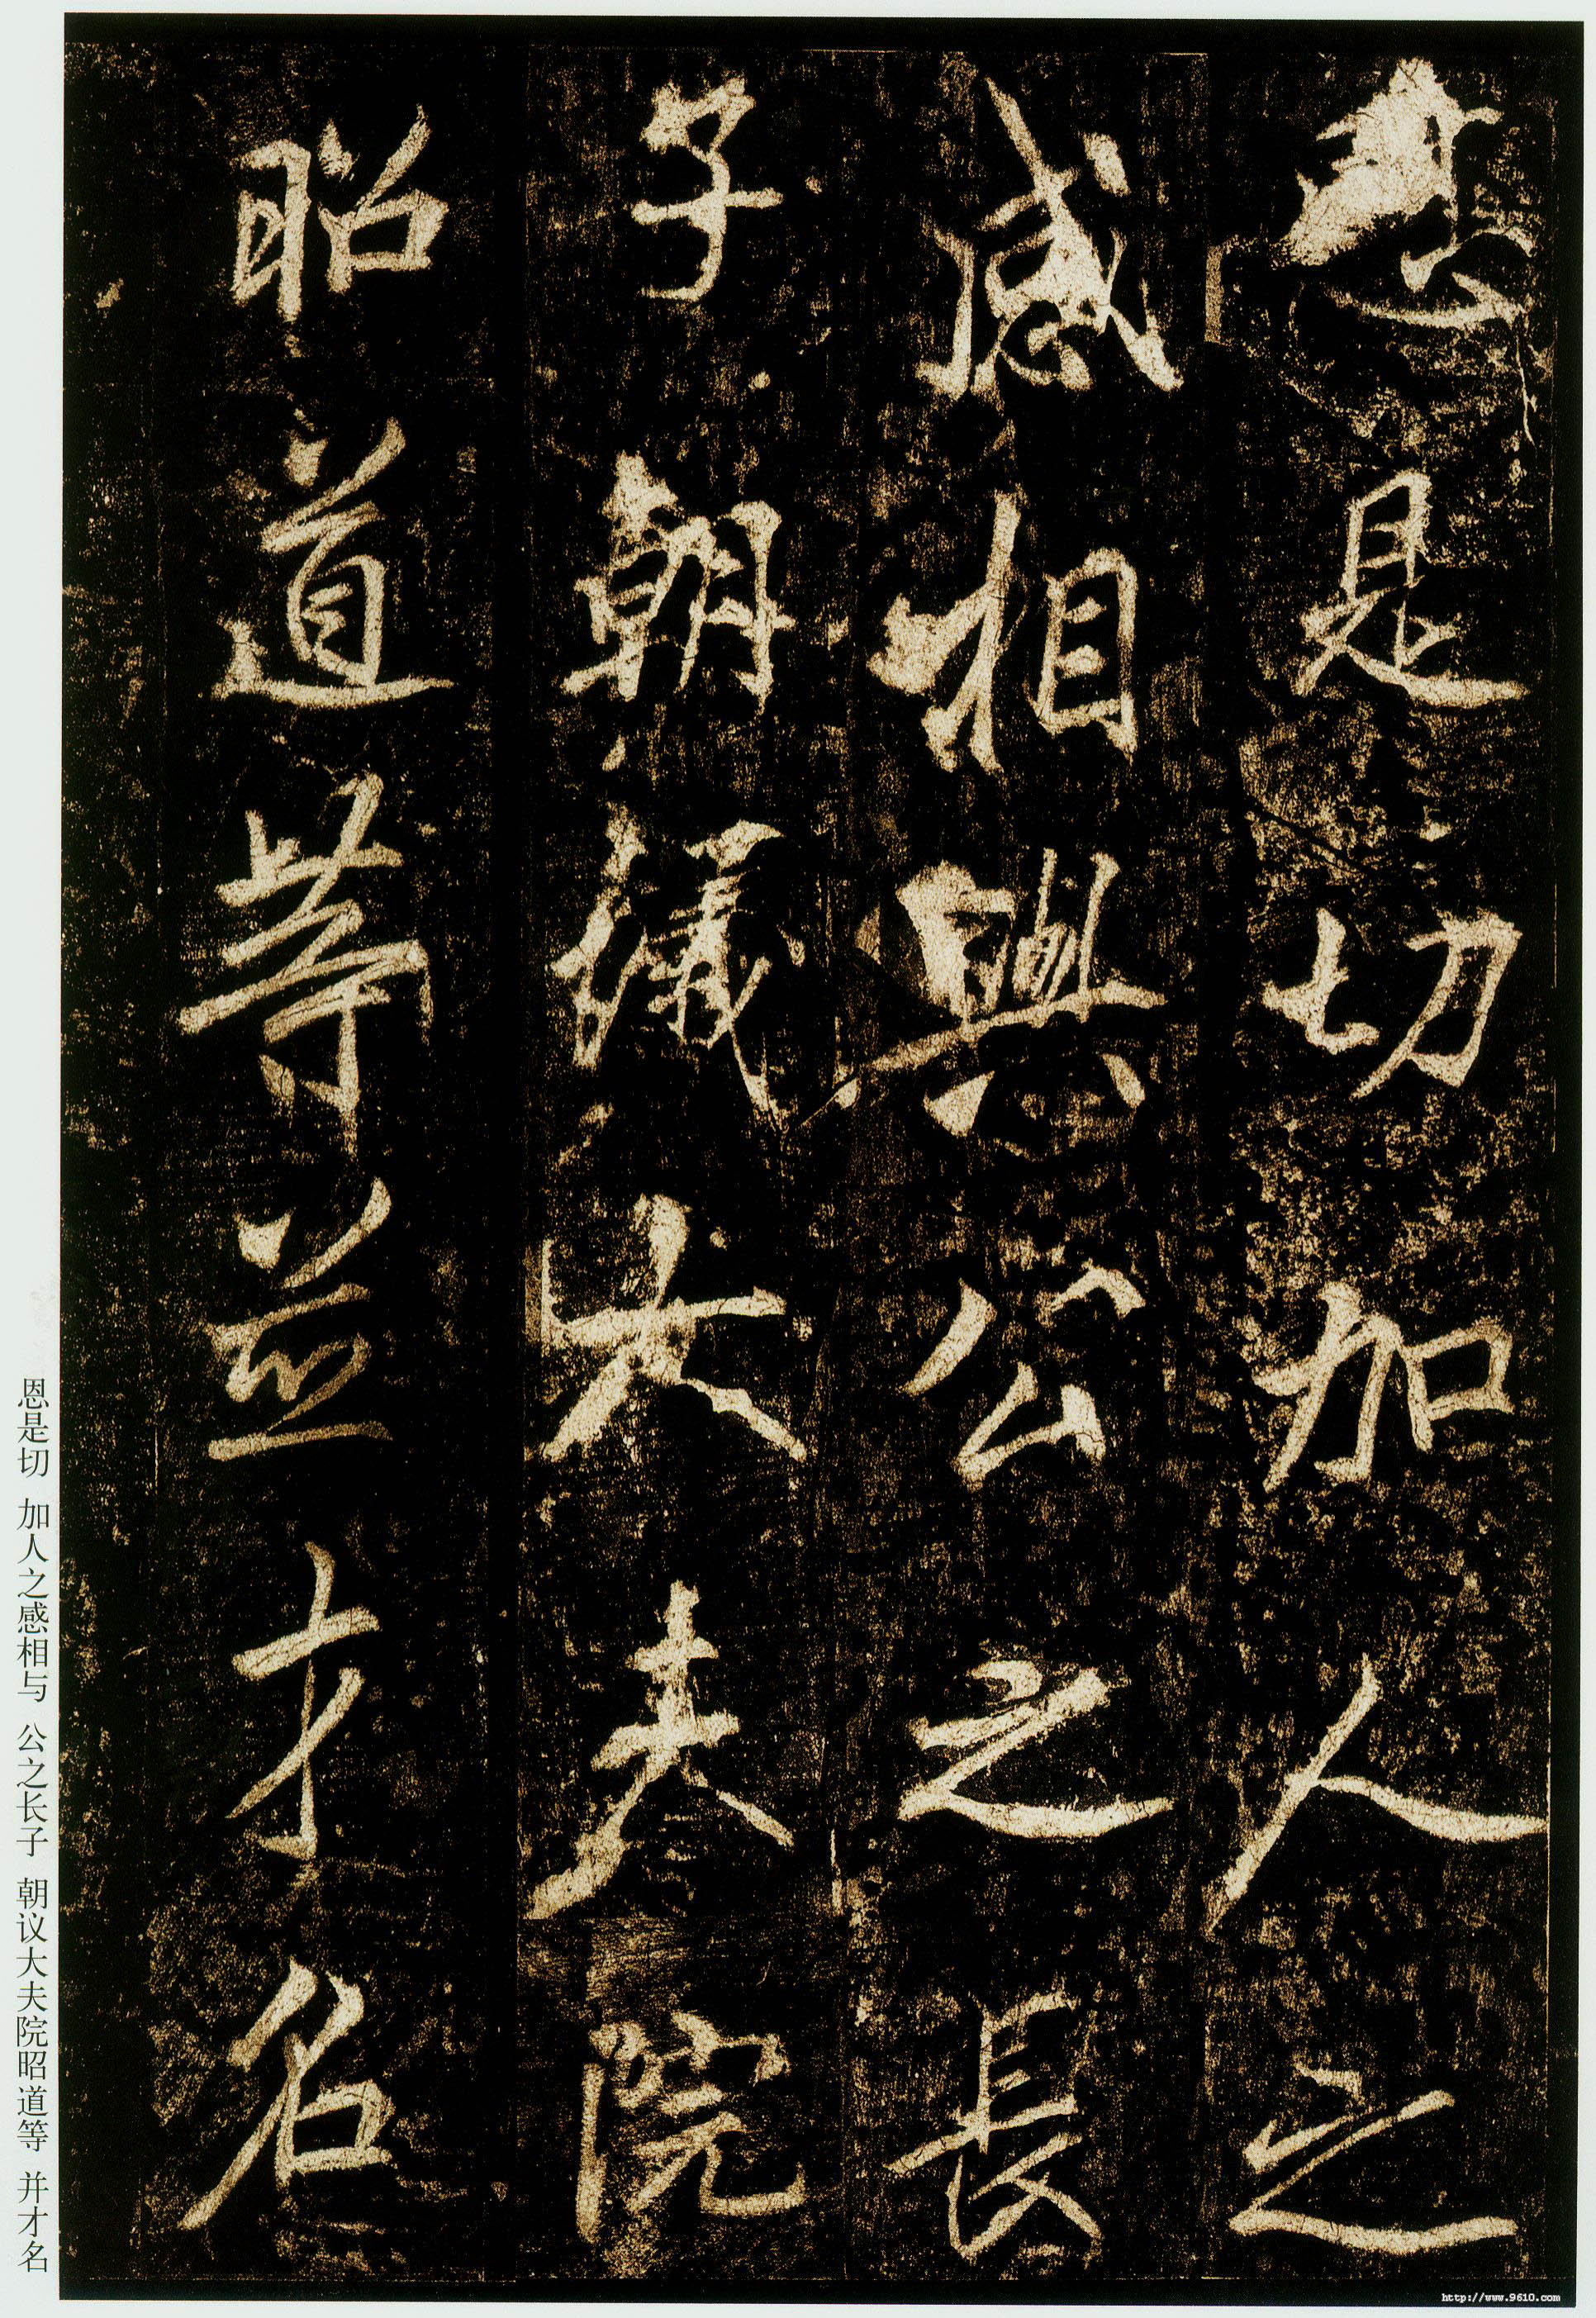 恩是切加人之
感相與公之長
子朝議大夫院
昭道等並才名
恩是切 加人之感相与 公之长子 朝议大夫院昭道等 并才名
http://www.9610.com